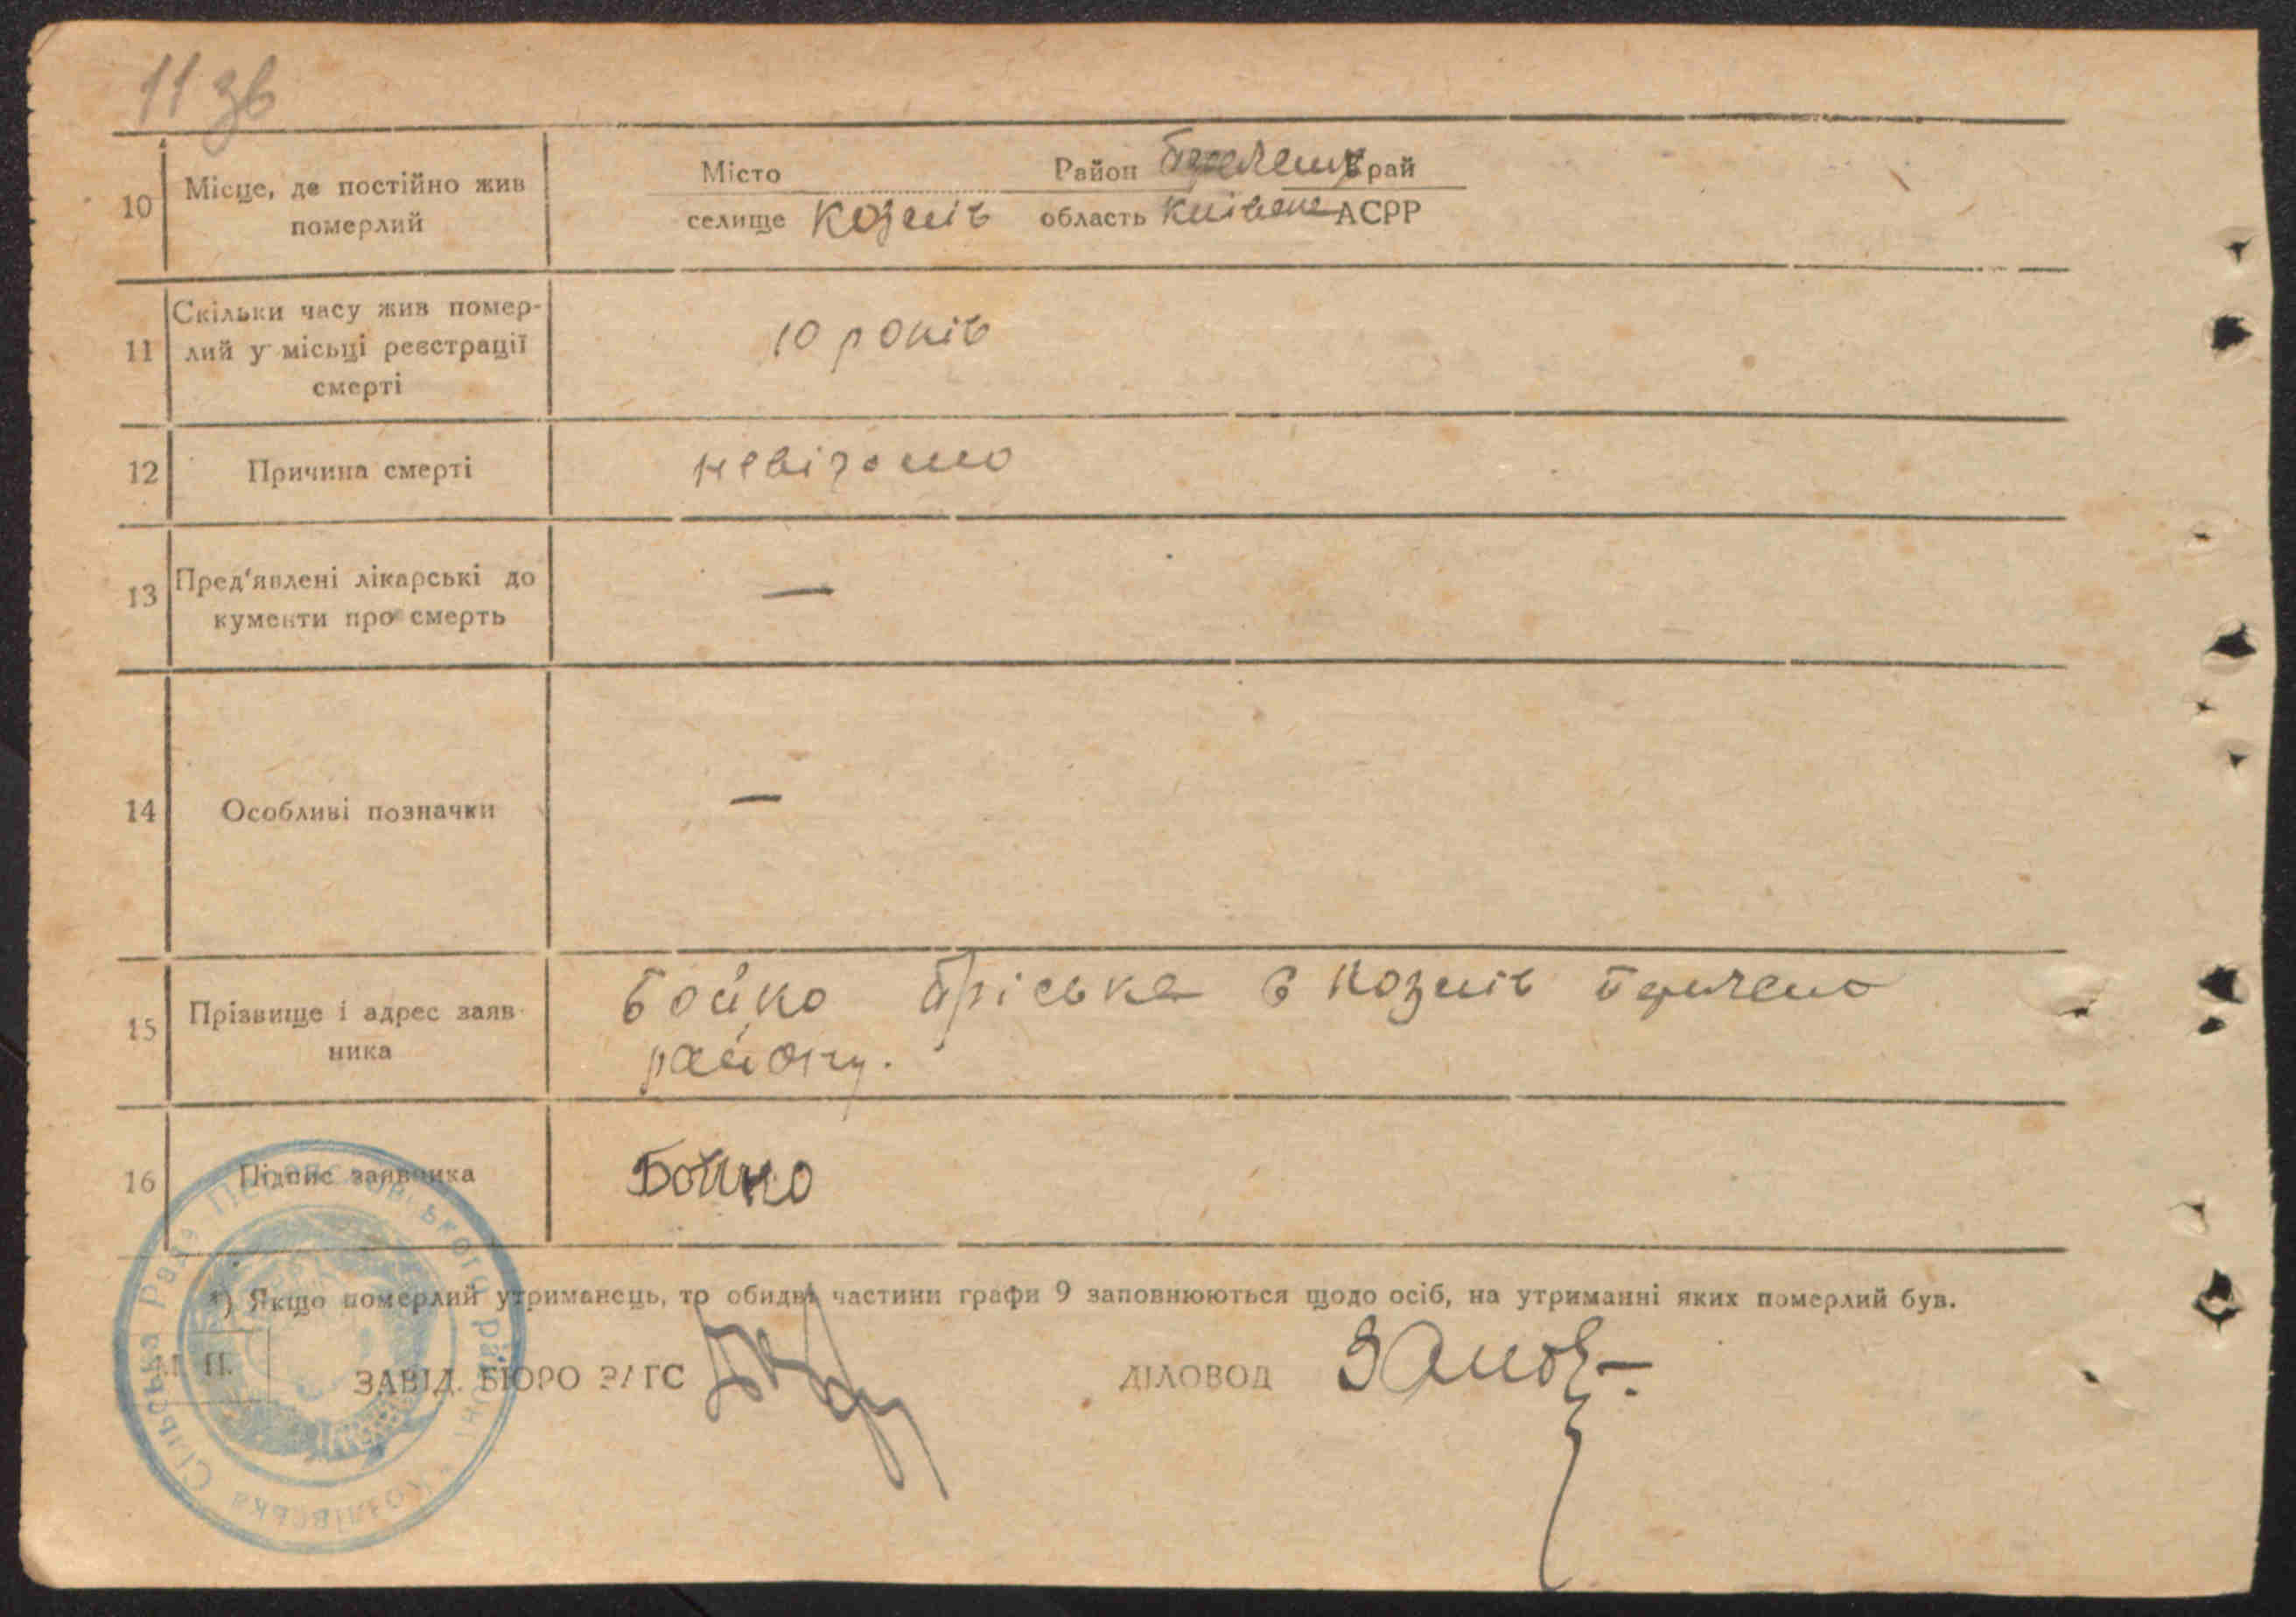 11 зв
10 Місце, де постійно жив померлий
Місто Район Край
селище Козлів область Київська АСРР
11 Скільки часу жив помер-
лий у місьці реєстрації
смерті
10 років
12 Причина смерті невідомо
13 Пред'явлені лікарські до
кументи про смерть
—
14 Особливі позначки —
15 Прізвище і адрес заяв-
ника
Бойко Пріська с Козлів
району.
16 Підпис заявника Бойко
*) Якщо померлий утриманець, то обидві частини графи 9 заповнюються щодо осіб, на утриманні яких померлий був.
М. П.
ЗАВІД. БЮРО ЗАГС ДІЛОВОД
Козлівська Сільська Рада району